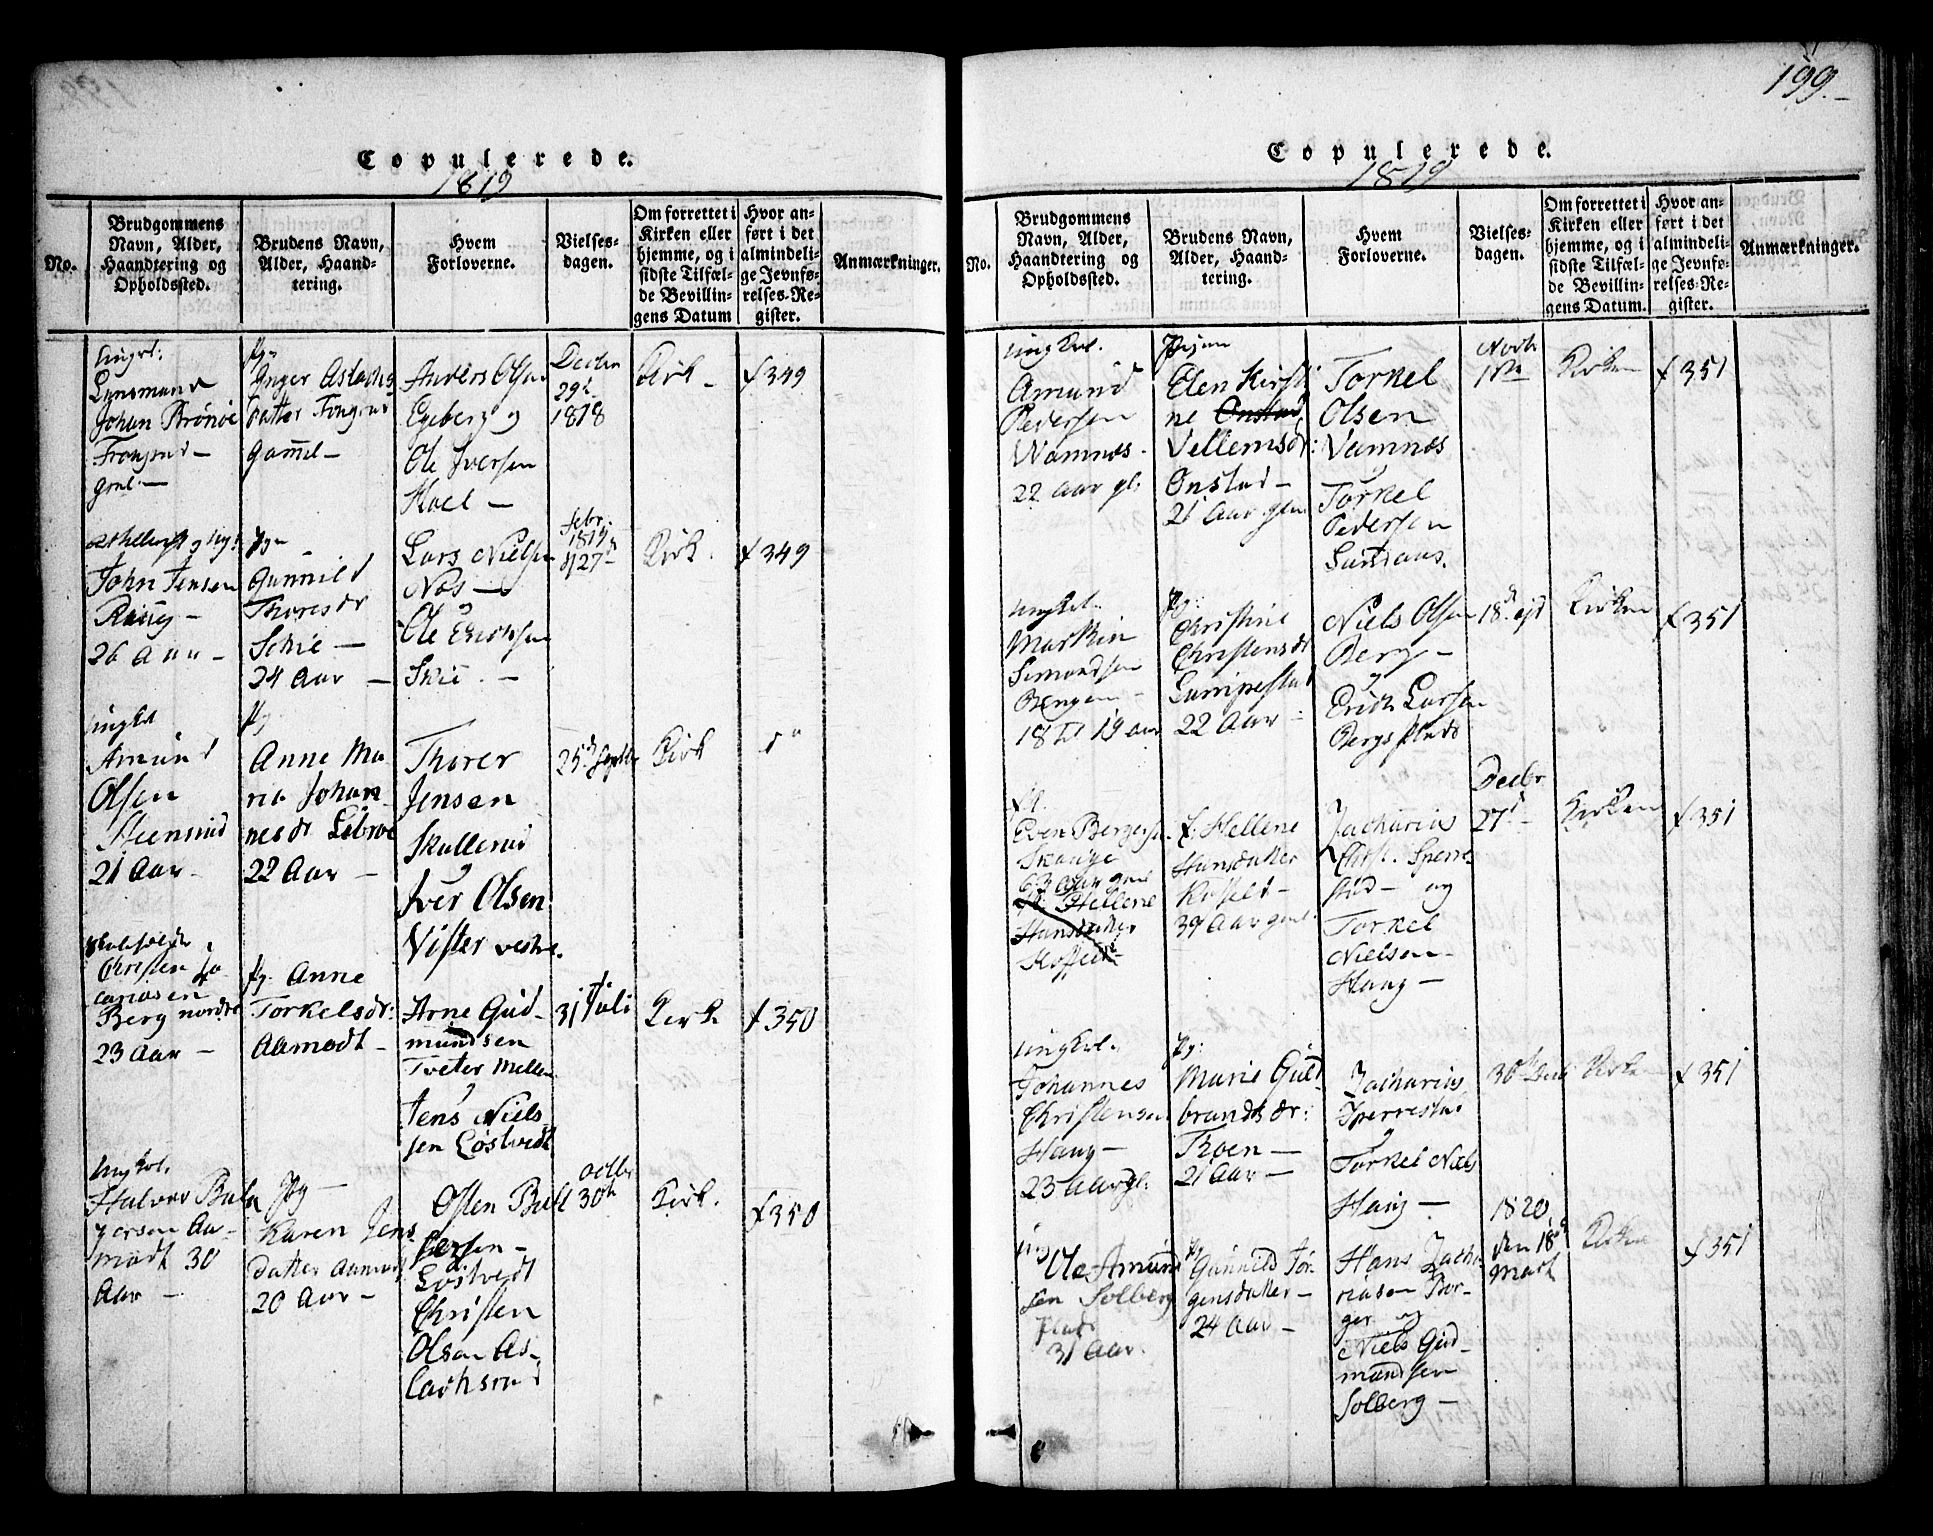 199.
Copulerede.
1819
No.
Brudgommens
Navn, Alder,
Haandtering og
Opholdssted.
Brudens Navn,
Alder, Haand-
tering.
Hvem
Forloverne.
Vielses-
dagen.
Om forrettet i
Kirken eller
hjemme, og i
sidste Tilfæl-
de Bevillin-
gens Datum
Hvor an-
ført i det
almindeli-
ge Jevnfø-
relses-Re-
gister.
Anmærkninger.
Ungk:
Lensmand
Johan Brönöe
Frogner
Pig
Inger Aslachs
datter Frogner
gammel
Anders Olsen
Egeberg og
Ole Iversen
Hoel
Decbr
29d
1818
Kirk
f 349
John Jensen
26 Aar
Pige
Gunnild
Thoresdr
Schie
24 Aar
Lars Nielsen
Nos
Ole Erichsen
Skie
Febr.
1819
27
Kirk.
f 349
ungkl
Amund
Olsen
Steensrud
21 Aar
Pig
Anne Ma
ria Johan
nesdr Lebroe
22 Aar
Thorer
Jensen
Skullerud
Iver Olsen
Vister vestre
25d Septbr
Kirk
do
Christen Za
cariasen
Berg nordre
23 Aar
Pig. Anne
Torkelsdr:
Aamodt
Arne Gud-
mundsen
Tveter Mellem
Jens Niels
sen Löstvedt
31 Juli
Kirk
f 350
ungkl.
Halvor Bul
gersen Aa-
modt 30
Aar
Pig
Karen Jens
datter Aamodt
20 Aar
Osten Bul
gersen
Löstvedt
Christen
Olsen As-
lachsrud
octbr
30te
Kirk.
f 350
Copulerede.
1819
No.
Brudgommens
Navn, Alder,
Haandtering og
Opholdssted.
Brudens Navn,
Alder, Haand-
tering.
Hvem
Forloverne.
Vielses-
dagen.
Om forrettet i
Kirken eller
hjemme, og i
sidste Tilfæl-
de Bevillin-
gens Datum.
Hvor an-
ført i det
almindeli-
ge Jevnfø-
relses-Re-
gister.
Anmærkninger.
ungkl.
Amund
Pedersen
Wamnæs
22 Aar gl.
Pigen
Elen Kirsti
ne Onstad
Vellemsdr:
Onstad
21 Aar gl
Torkel
Olsen
Vamnæs
Torkel
Pedersen
Sundaas.
Novbr
Kirken
f 351
ungkl.
Markin
Simondsen
Bengen
18 til 19 aar
Pig:
Christine
Christensdr
22 Aar
Niels Olsen
Berg
Erich Larsen
Bergs plads
18d ejd
Kirken
f 351
Even Bergersen
Skouge
63 Aar gml
f. Hellene
Hansdatter
f. Hellene
Hansdatter
39 Aar gml.
Zacharias
Chrst. Sperre
stad og
Torkel
Nielsen
Haug
Decbr
27d
Kirken
f 351
ungkl.
Johannes
Christensen
Haug
23 Aar gl.
Pg:
Marie Guld
brandsdr:
Thoen
21 Aar
Zacharias
Sperrestad
Torkel Niels
Haug
30te Decb
Kirken
f 351
Ole Amund
sen Solberg
plads
31 Aar.
Pg
Gunnild Tor
gensdatter
24 Aar
Hans Zacha
riasen Bor-
ger og
Niels Gud-
mundsen
Solberg
1820
den 18d
Mart
Kirken
f 351